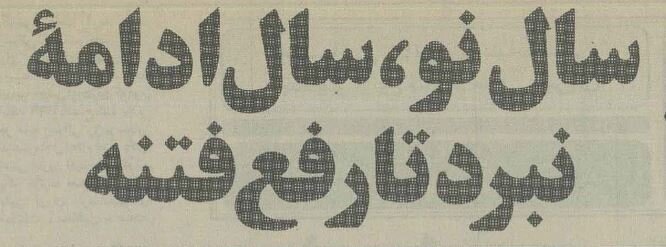 سال نو، سال ادامهٔ
نبرد تا رفع فتنه